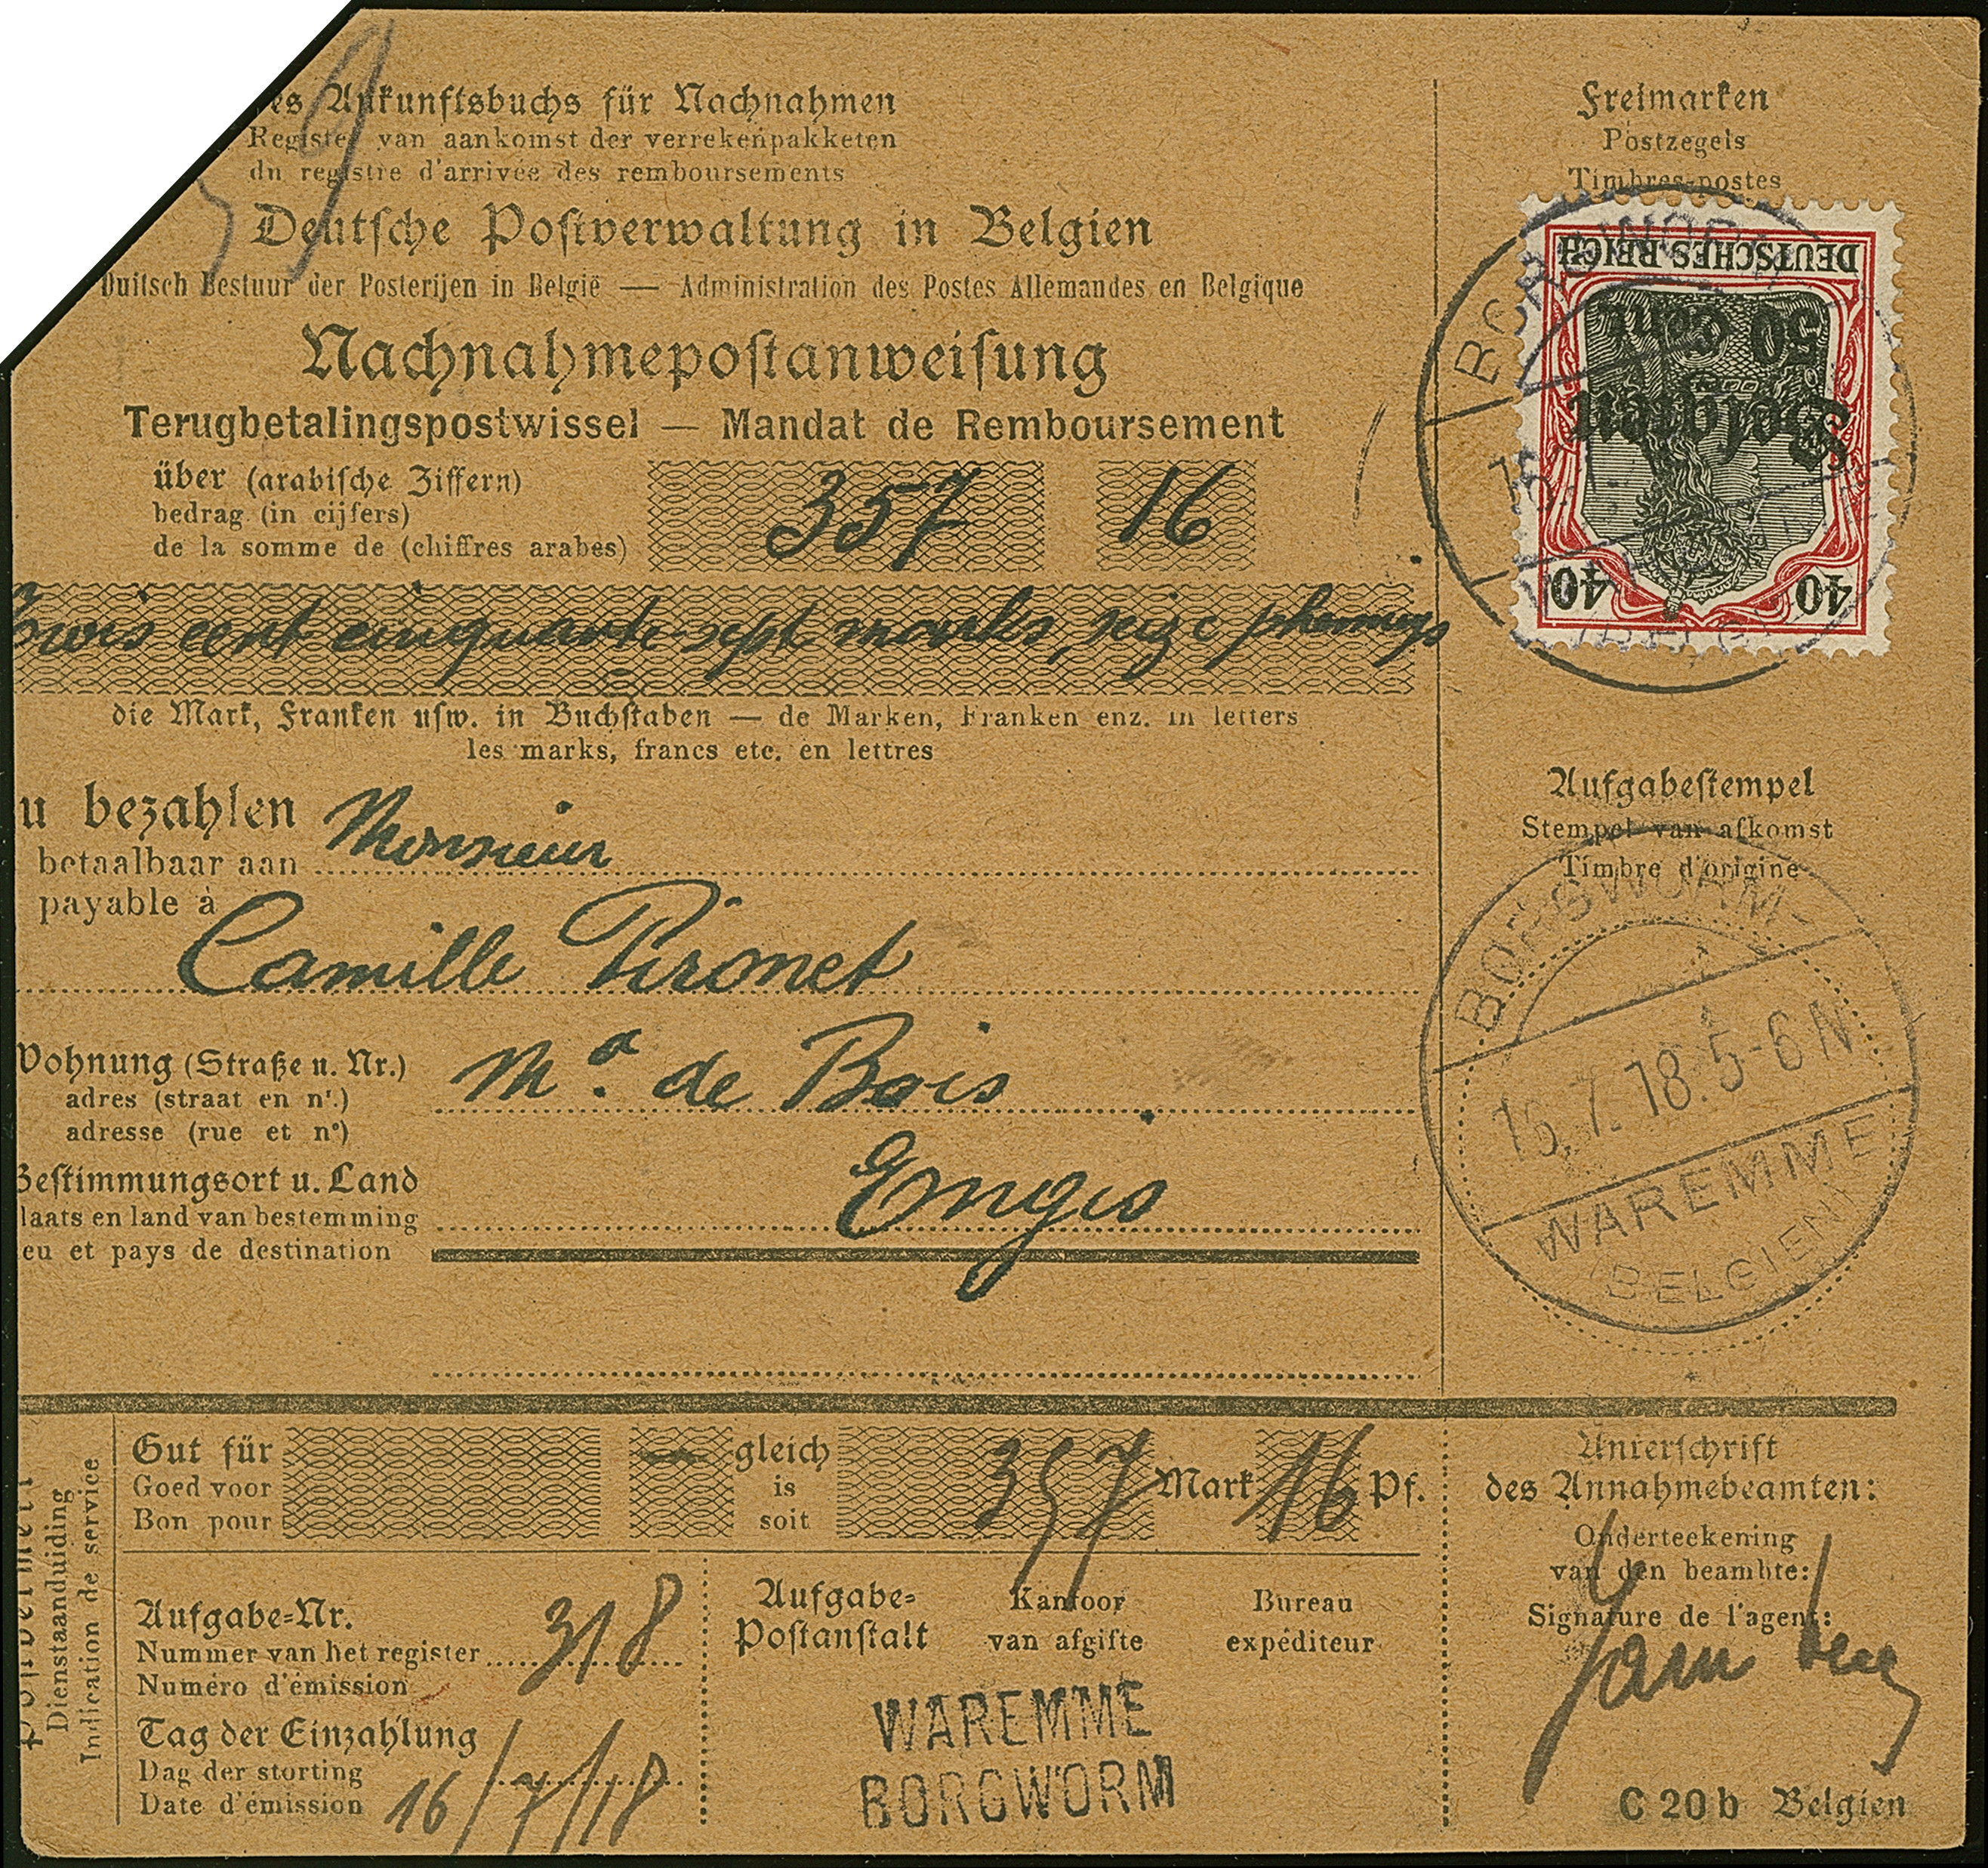 es Ankunftsbuchs für Nachnahmen
Register van aankomst der verrekenpakketen
du registre d'arrivée des remboursements
Deutsche Postverwaltung in Belgien
Duitsch Bestuur der Posterijen in België — Administration des Postes Allemandes en Belgique
Nachnahmepostanweisung
Terugbetalingspostwissel — Mandat de Remboursement
über (arabische Ziffern)
bedrag (in cijfers)
de la somme de (chiffres arabes)
357 16
cent cinquante-sept marks, seize phennigs
die Mark, Franken usw. in Buchstaben — de Marken, Franken enz. in letters
les marks, francs etc. en lettres
u bezahlen
betaalbaar aan
payable à
Monsieur
Camille Pironet
Wohnung (Straße u. Nr.)
adres (straat en nr.)
adresse (rue et n°)
Md. de Bois
Bestimmungsort u. Land
laats en land van bestemming
eu et pays de destination
Engis
Freimarken
Postzegels
Timbres-postes
DEUTSCHES REICH
50 Cent.
Belgien
40 40
BORGWORM
Aufgabestempel
Stempel van afkomst
Timbre d'origine
BORGWORM-
16.7.18.5-6N
WAREMME
(BELGIEN)
Dienstaanduiding
Indication de service
Gut für
Goed voor
Bon pour
gleich
is
soit
357 Mark 16 Pf.
Aufgabe-Nr.
Nummer van het register
Numéro d'émission
318
Tag der Einzahlung
Dag der storting
Date d'émission
16/7/18
Aufgabe-
Postanstalt
Kantoor
van afgifte
Bureau
expéditeur
WAREMME
BORGWORM
Unterschrift
des Annahmebeamten:
Onderteekening
van den beambte:
Signature de l'agent:
C 20 b Belgien